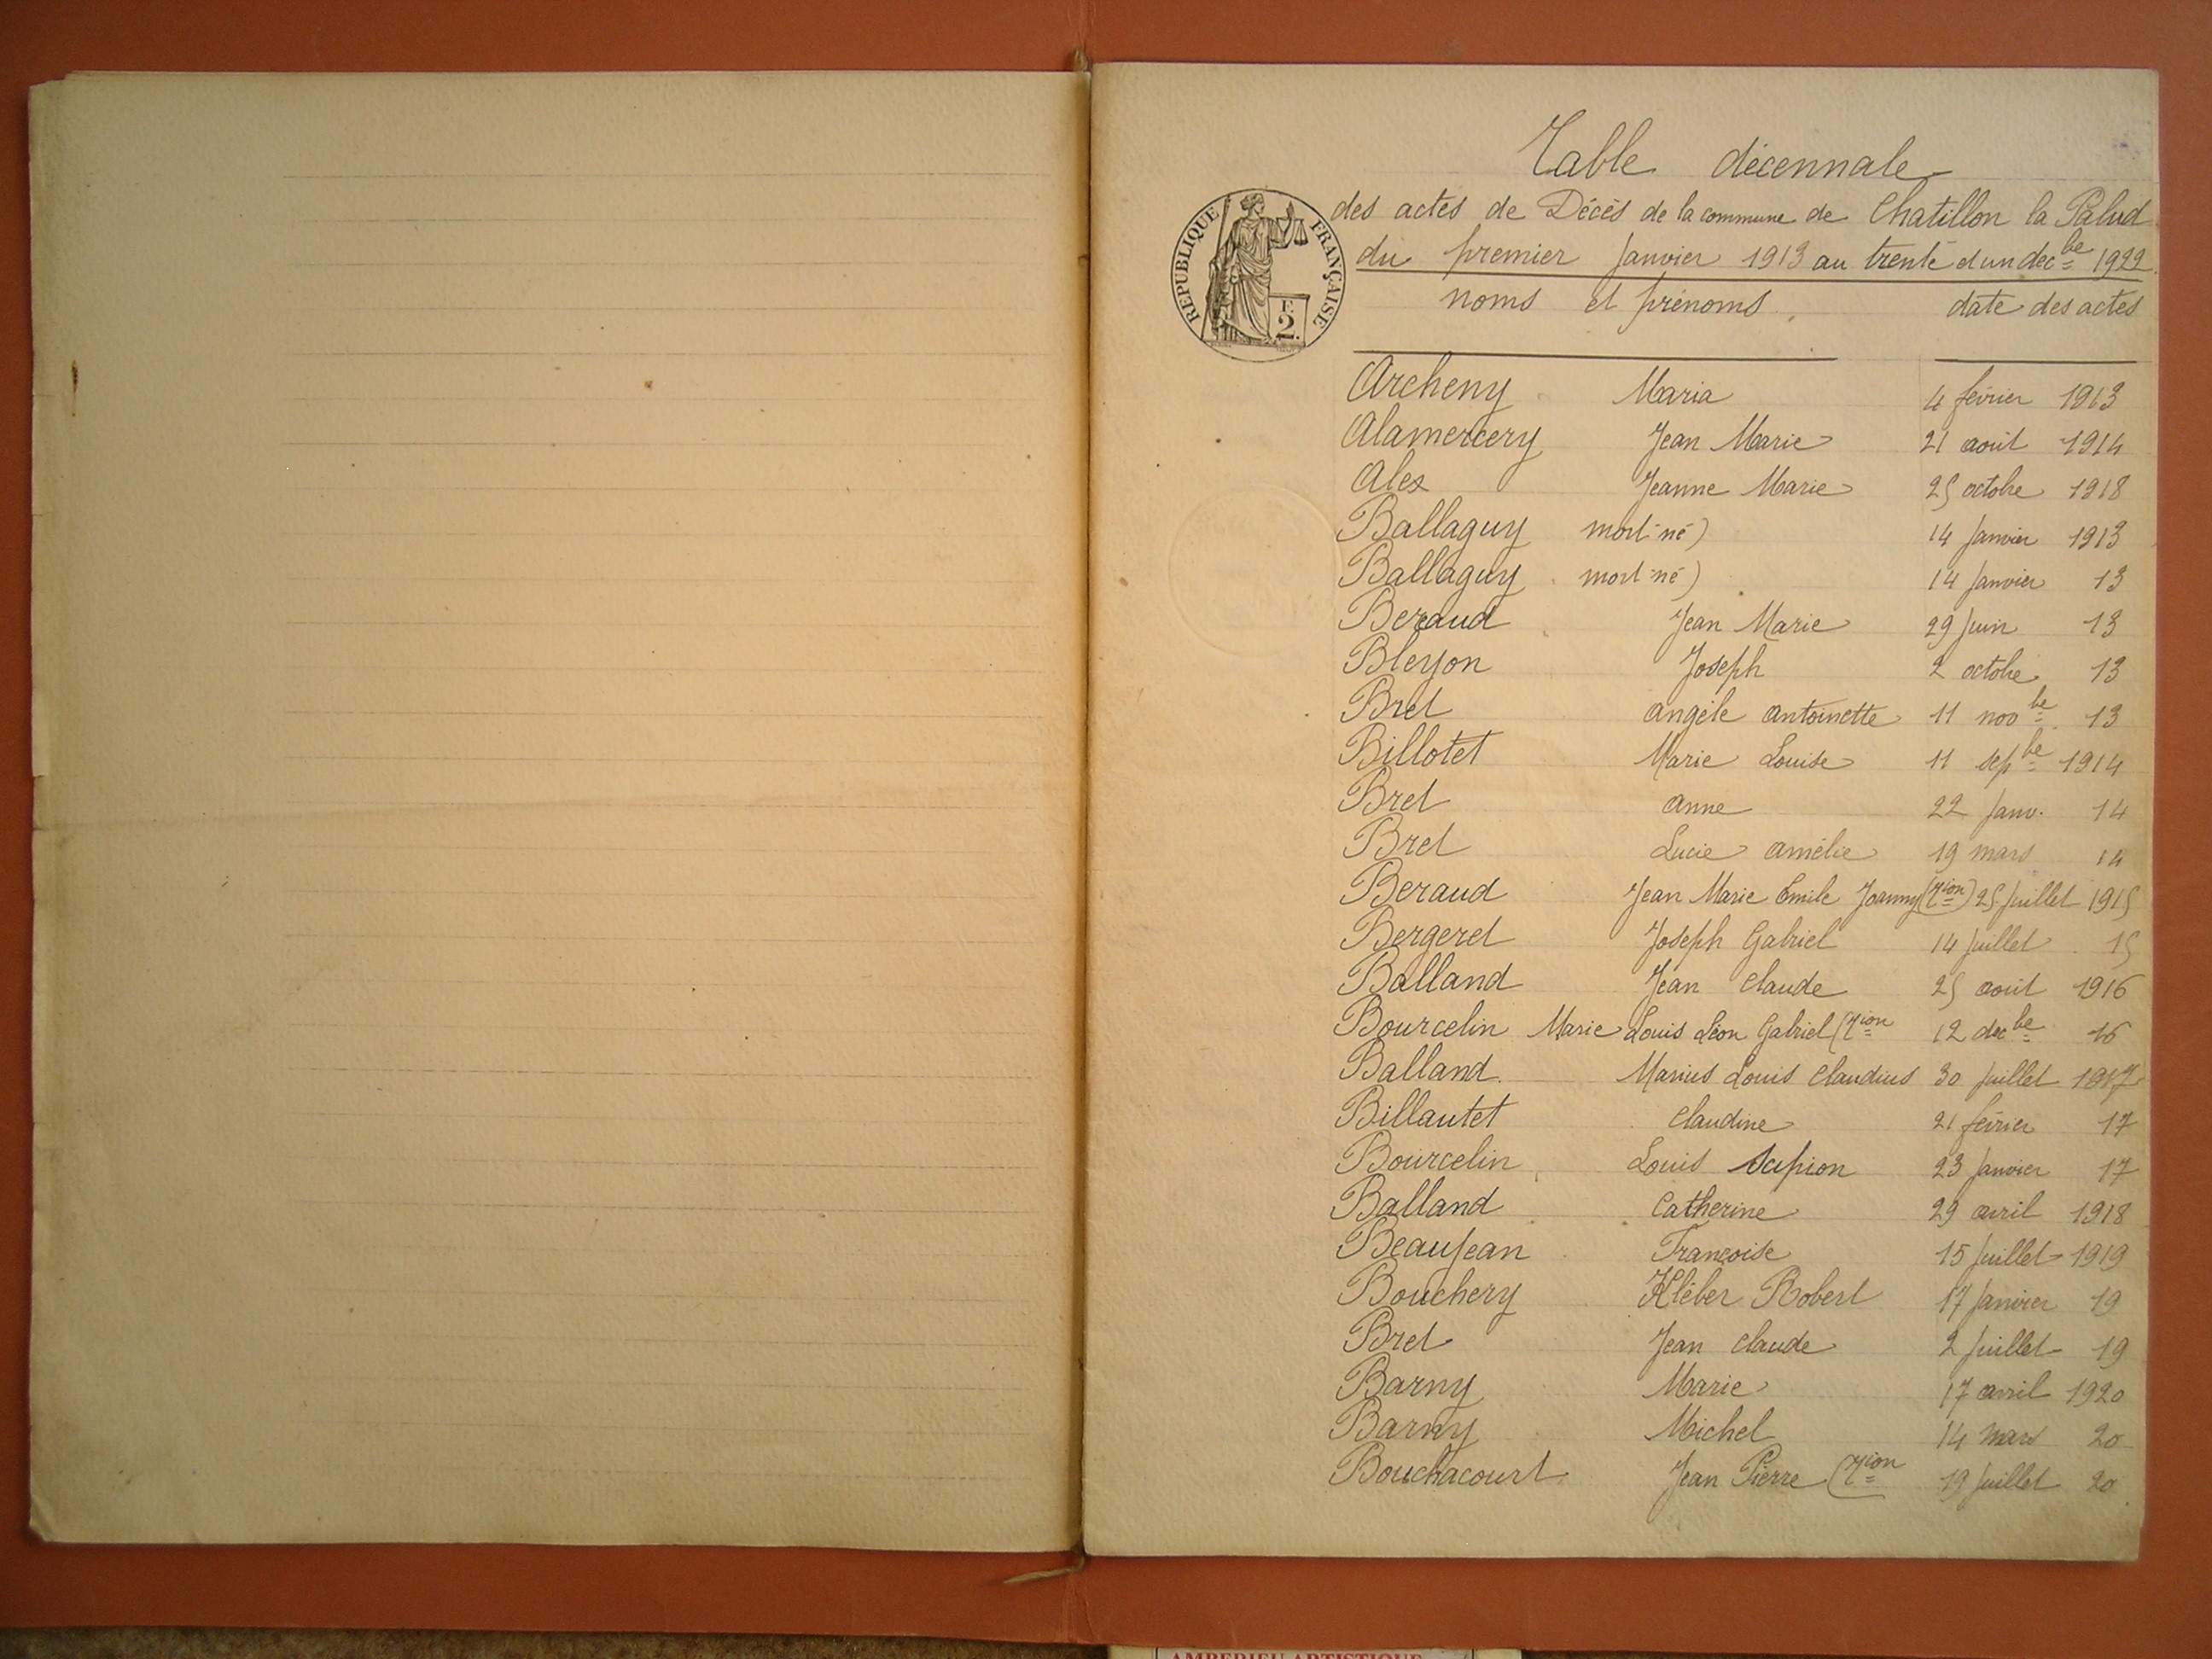 Table décennale
des actes de Décès de la commune de Chatillon la Palud
du premier Janvier 1913 au trente et un decbe 1922
REPUBLIQUE FRANÇAISE
F.
2.
noms et prénoms date des actes
Archeny Maria 4 février 1913
Alamercery Jean Marie 21 août 1914
Alex Jeanne Marie 25 octobre 1918
Ballaguy mort-né) 14 Janvier 1913
Ballaguy mort-né) 14 Janvier 13
Beraud Jean Marie 29 Juin 13
Bleyon Joseph 2 octobre 13
Bret Angèle Antoinette 11 novbe 13
Billotet Marie Louise 11 sepbe 1914
Bret Anne 22 Janv. 14
Bret Lucie Amélie 19 mars 14
Beraud Jean Marie Emile Joanny (Tion) 25 Juillet 1915
Bergeret Joseph Gabriel 14 Juillet 15
Balland Jean Claude 25 août 1916
Bourcelin Marie Louis Léon Gabriel (Tion 12 decbe 16
Balland Marius Louis Claudius 30 Juillet 1917
Billautet Claudine 21 février 17
Bourcelin Louis Scipion 23 Janvier 17
Balland Catherine 29 avril 1918
Beaujean Françoise 15 Juillet 1919
Bouchery Kléber Robert 17 Janvier 19
Bret Jean Claude 2 Juillet 19
Barny Marie 17 avril 1920
Barny Michel 14 mars 20
Bouchacourt Jean Pierre (Tion 19 Juillet 20
AMBERIEU ARTISTIQUE